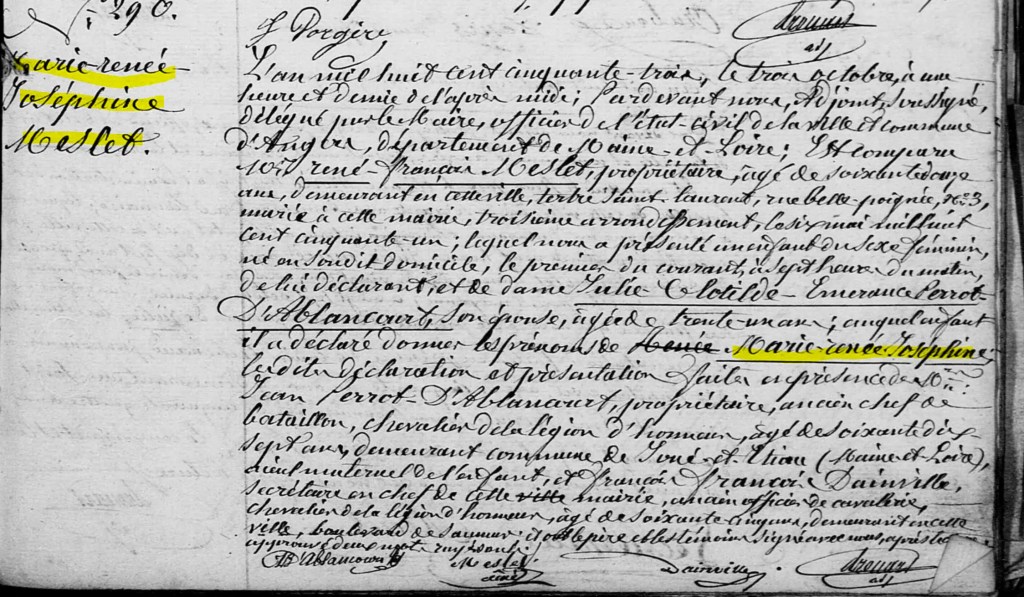 290.
Marie-renée-
Joséphine
Meslet.
L'an mil huit cent cinquante-trois, le trois octobre, à une
heure et demie de l'après midi; Pardevant nous, Adjoint, soussigné,
délégué par le Maire, officier de l'état civil de la ville et commune
d'Angers, département de Maine-et-Loire; Est comparu
M. rené-françois Meslet, propriétaire, âgé de soixante douze
ans, demeurant en cette ville, tertre Saint-laurent, rue belle poignée, No. 3,
marié à cette mairie, troisième arrondissement, le six mai mil huit
cent cinquante-un; lequel nous a présenté un enfant du sexe féminin,
né en son dit domicile, le premier du courant, à sept heures du matin,
de lui déclarant, et de dame Julie Clotilde-Emerance Perrot-
D'Ablancourt, son épouse, âgée de trente-un ans; auquel enfant
il a déclaré donner les prénoms de Marie-renée-Joséphine;
les dites déclaration et présentation faites en présence de M.
Jean Perrot-D'Ablancourt, propriétaire, ancien chef de
bataillon, chevalier de la légion d'honneur, âgé de soixante dix-
sept ans, demeurant commune de Soné-et-Etiau (Maine-et-Loire),
aïeul maternel de l'enfant, et François Dainville,
secrétaire en chef de cette ville mairie, ancien officier de cavalerie,
chevalier de la légion d'honneur, âgé de soixante cinq ans, demeurant en cette
ville, boulevard de saumur; et ont le père et les témoins signé avec nous, après
approuvé deux mots rayés nuls.
D'Ablancourt Meslet aîné Dainville